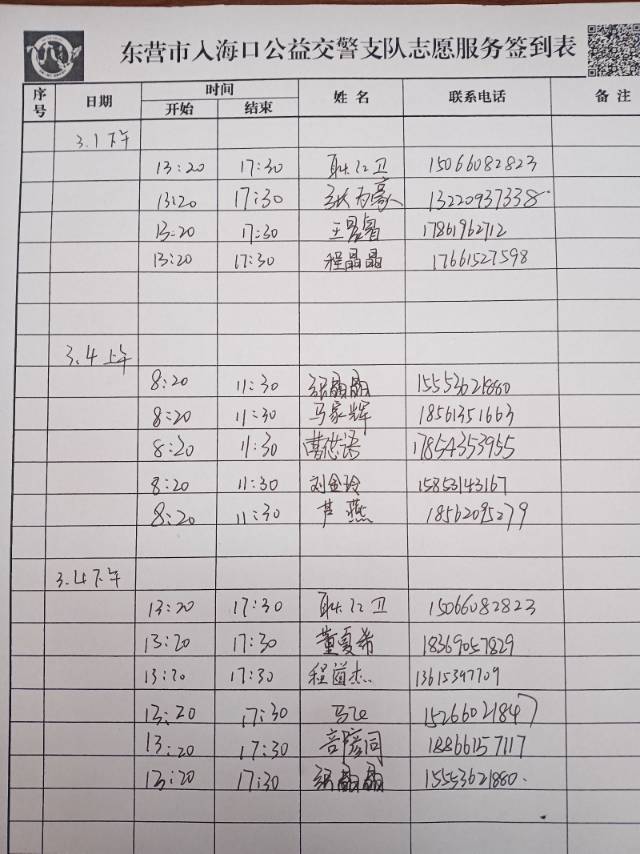 东营市入海口公益交警支队志愿服务签到表
序号 日期 时间 姓名 联系电话 备注
开始 结束
3.1下午
13:20 17:30 耿仁卫 15066082823
13:20 17:30 13220937338
13:20 17:30 17861962712
13:20 17:30 程晶晶 17661527598
3.4上午
8:20 11:30 张晶晶 15553621880
8:20 11:30 马家辉 18561351663
8:20 11:30 曹芯语 17854353955
8:20 11:30 刘金玲 15853143167
8:20 11:30 芦燕 18562095279
3.4下午
13:20 17:30 耿仁卫 15066082823
13:20 17:30 董夏希 18369057829
13:20 17:30 程道杰 13615397709
13:20 17:30 马飞 15266021847
13:20 17:30 18866157117
13:20 17:30 张晶晶 15553621880